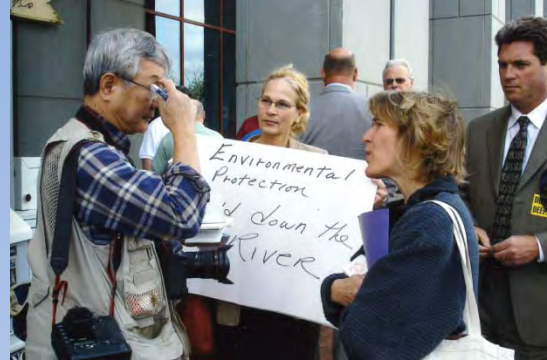 Environmental
Protection
'd down the
RIVER